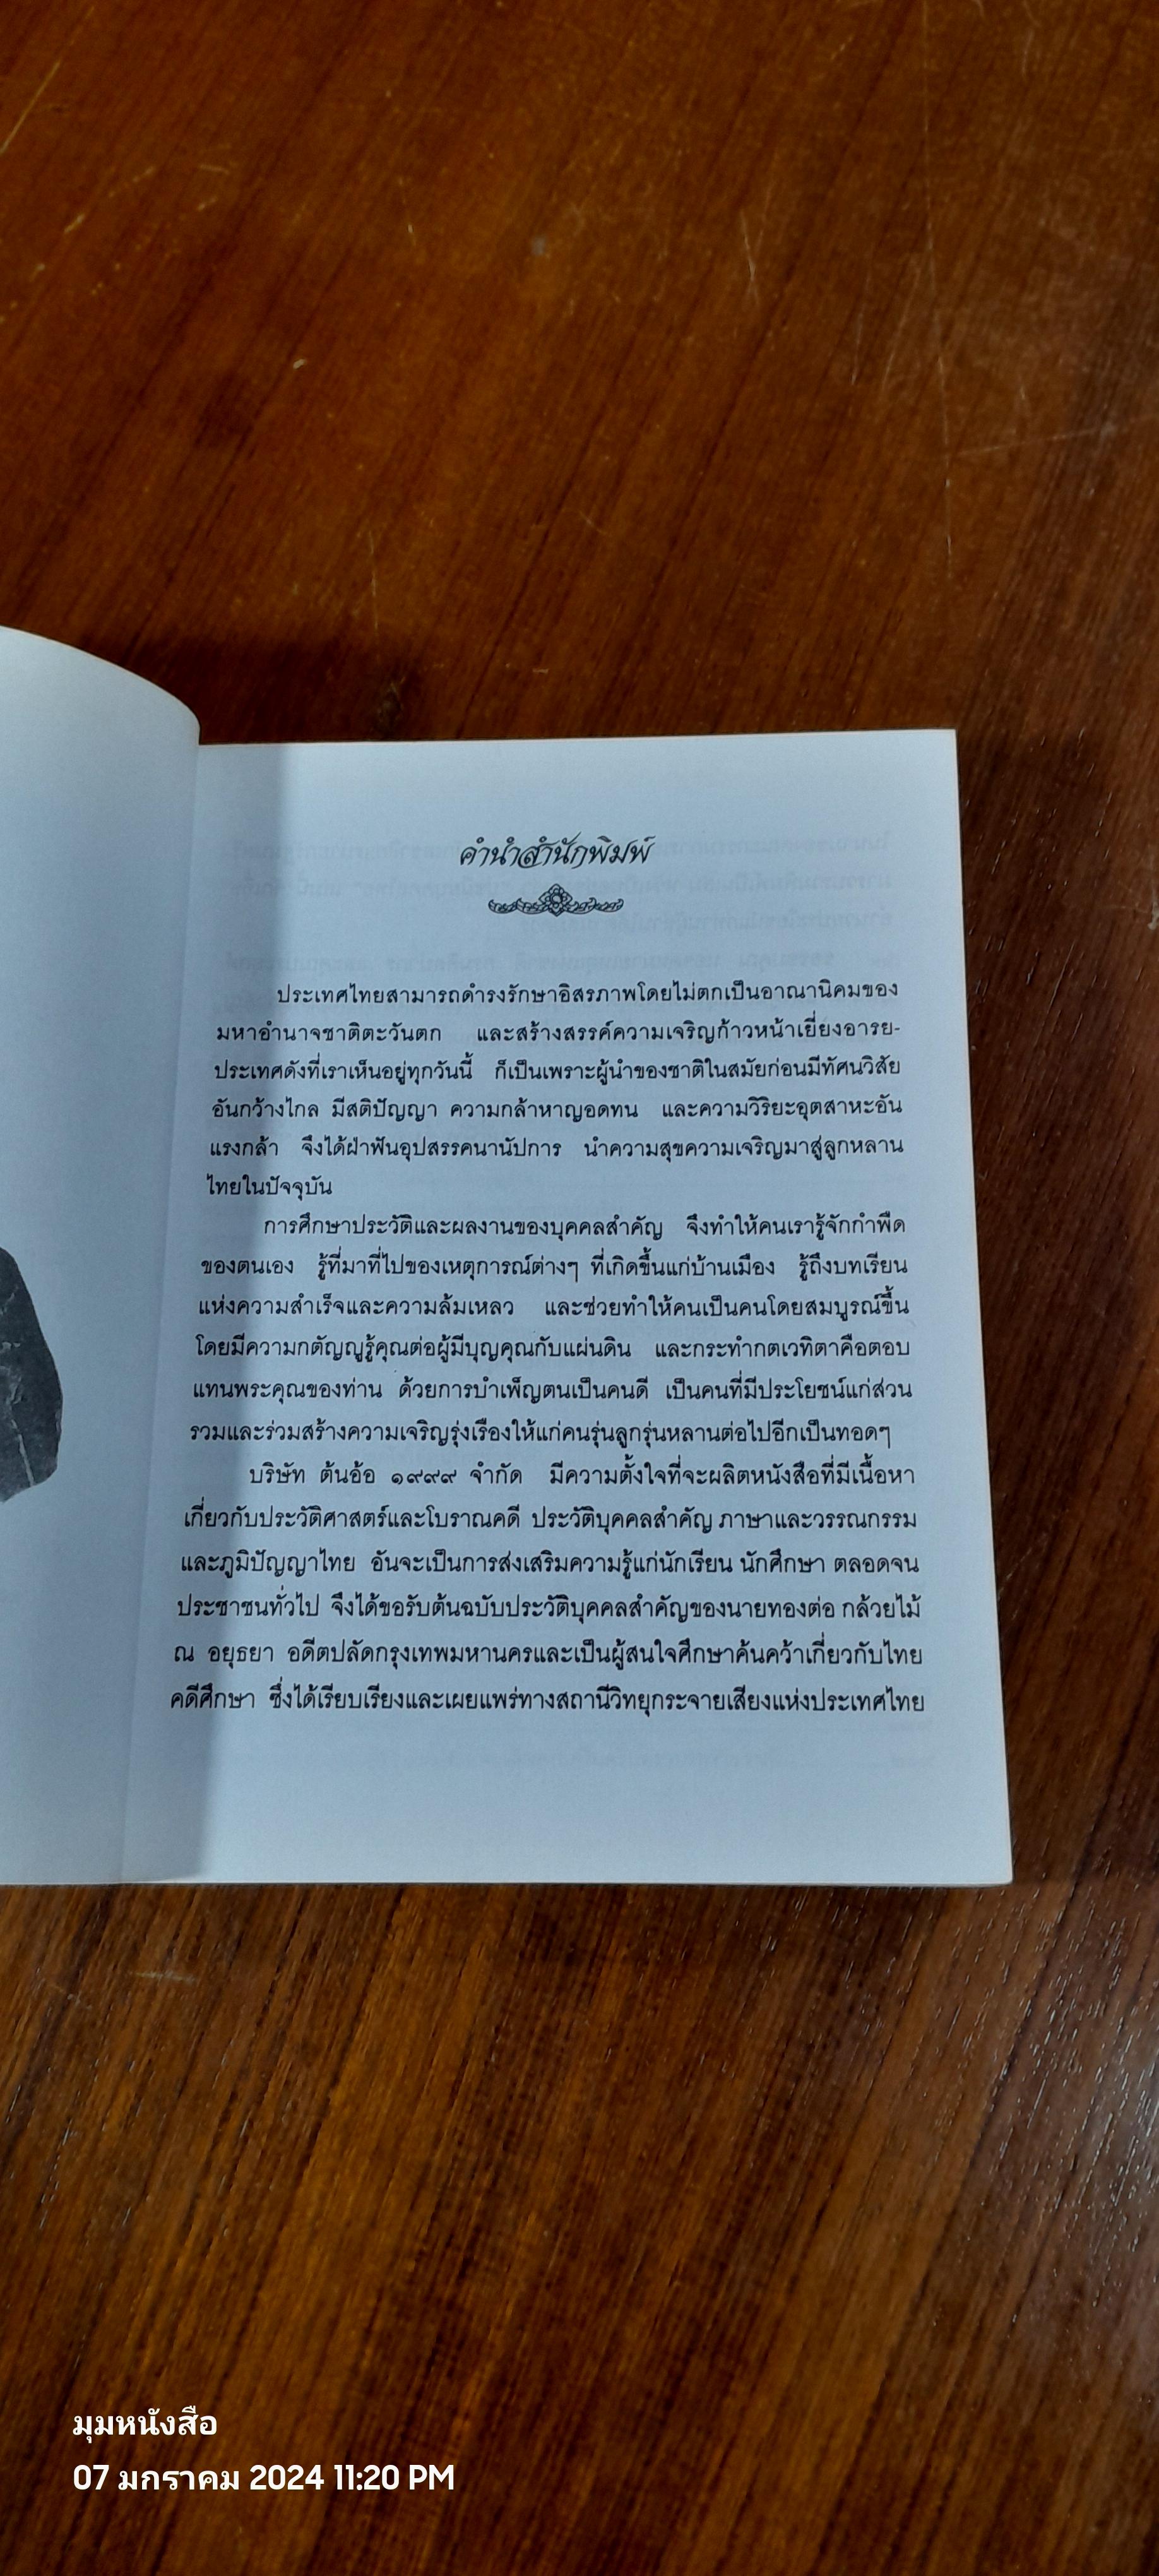 คำนำสำนักพิมพ์
ประเทศไทยสามารถดำรงรักษาอิสรภาพโดยไม่ตกเป็นอาณานิคมของ
มหาอำนาจชาติตะวันตก และสร้างสรรค์ความเจริญก้าวหน้าเยี่ยงอารย-
ประเทศดังที่เราเห็นอยู่ทุกวันนี้ ก็เป็นเพราะผู้นำของชาติในสมัยก่อนมีทัศนวิสัย
อันกว้างไกล มีสติปัญญา ความกล้าหาญอดทน และความวิริยะอุตสาหะอัน
แรงกล้า จึงได้ฝ่าฟันอุปสรรคนานัปการ นำความสุขความเจริญมาสู่ลูกหลาน
ไทยในปัจจุบัน
การศึกษาประวัติและผลงานของบุคคลสำคัญ จึงทำให้คนเรารู้จักกำพืด
ของตนเอง รู้ที่มาที่ไปของเหตุการณ์ต่างๆ ที่เกิดขึ้นแก่บ้านเมือง รู้ถึงบทเรียน
แห่งความสำเร็จและความล้มเหลว และช่วยทำให้คนเป็นคนโดยสมบูรณ์ขึ้น
โดยมีความกตัญญูรู้คุณต่อผู้มีบุญคุณกับแผ่นดิน และกระทำกตเวทิตาคือตอบ
แทนพระคุณของท่าน ด้วยการบำเพ็ญตนเป็นคนดี เป็นคนที่มีประโยชน์แก่ส่วน
รวมและร่วมสร้างความเจริญรุ่งเรืองให้แก่คนรุ่นลูกรุ่นหลานต่อไปอีกเป็นทอดๆ
บริษัท ต้นอ้อ ๑๙๙๙ จำกัด มีความตั้งใจที่จะผลิตหนังสือที่มีเนื้อหา
เกี่ยวกับประวัติศาสตร์และโบราณคดี ประวัติบุคคลสำคัญ ภาษาและวรรณกรรม
และภูมิปัญญาไทย อันจะเป็นการส่งเสริมความรู้แก่นักเรียน นักศึกษา ตลอดจน
ประชาชนทั่วไป จึงได้ขอรับต้นฉบับประวัติบุคคลสำคัญของนายทองต่อ กล้วยไม้
ณ อยุธยา อดีตปลัดกรุงเทพมหานครและเป็นผู้สนใจศึกษาค้นคว้าเกี่ยวกับไทย
คดีศึกษา ซึ่งได้เรียบเรียงและเผยแพร่ทางสถานีวิทยุกระจายเสียงแห่งประเทศไทย
มุมหนังสือ
07 มกราคม 2024 11:20 PM